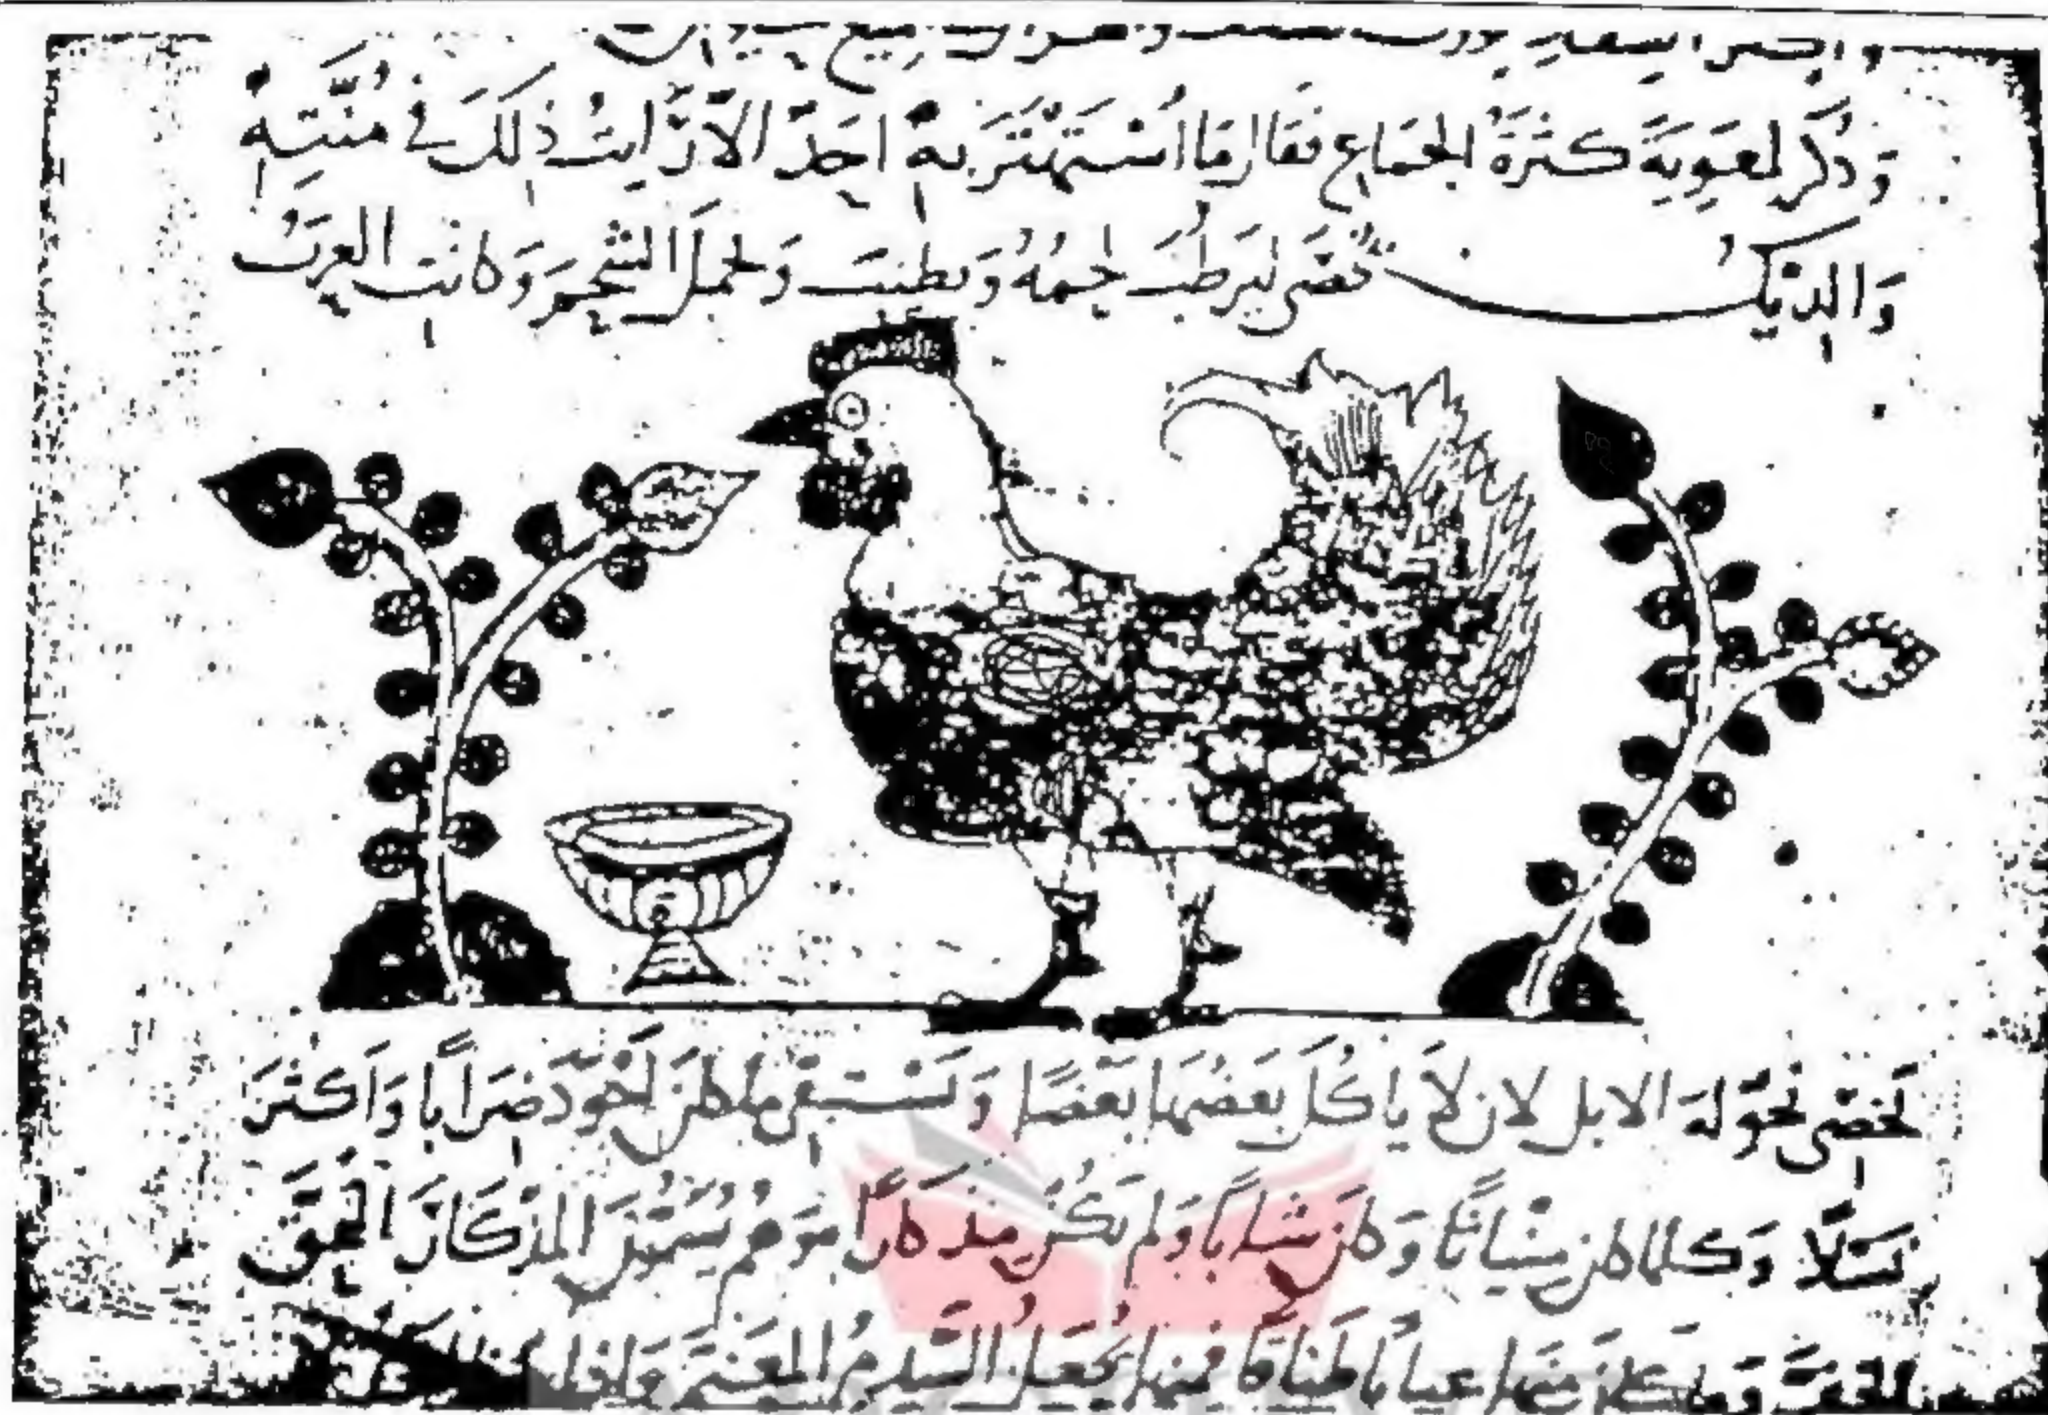 وذكر لمعوية كثرة الجماع فقال ما استهتر به احد الا رايت ذلك في منته
والديك يخصى ليرطب لحمه ويطيب ويحمل الشحم وكانت العرب
تخصى فحولة الابل لان لا ياكل بعضها بعضا وتستبقى ما كان اجود ضرابا واكثر
نسلا وكلما كان مينانا وكان شابا ولم يكن مذكارا وهم يسمون المذكار المحق
وما كان منها عياياء طباقاء فمنها يجعل السدم المعنى